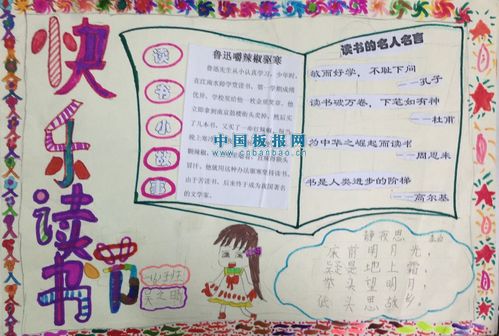 快乐读书节
读书小故事
鲁迅嚼辣椒驱寒
鲁迅先生从小认真学习。少年时，
在江南水师学堂读书，第一学期成绩
优异，学校奖给他一枚金质奖章。他
立即拿到南京鼓楼街头卖掉，然后买
了几本书，又买了一串红辣椒。每当
晚上寒冷
嚼辣椒
冒汗。他就用这种办法驱寒坚持读书。
由于苦读书，后来终于成为我国著名
的文学家。
读书的名人名言
敏而好学，不耻下问
——孔子
读书破万卷，下笔如有神
——杜甫
为中华之崛起而读书
——周恩来
书是人类进步的阶梯
——高尔基
中国板报网
www.cnbanbao.cn
静夜思
床前明月光，
疑是地上霜。
举头望明月，
低头思故乡。